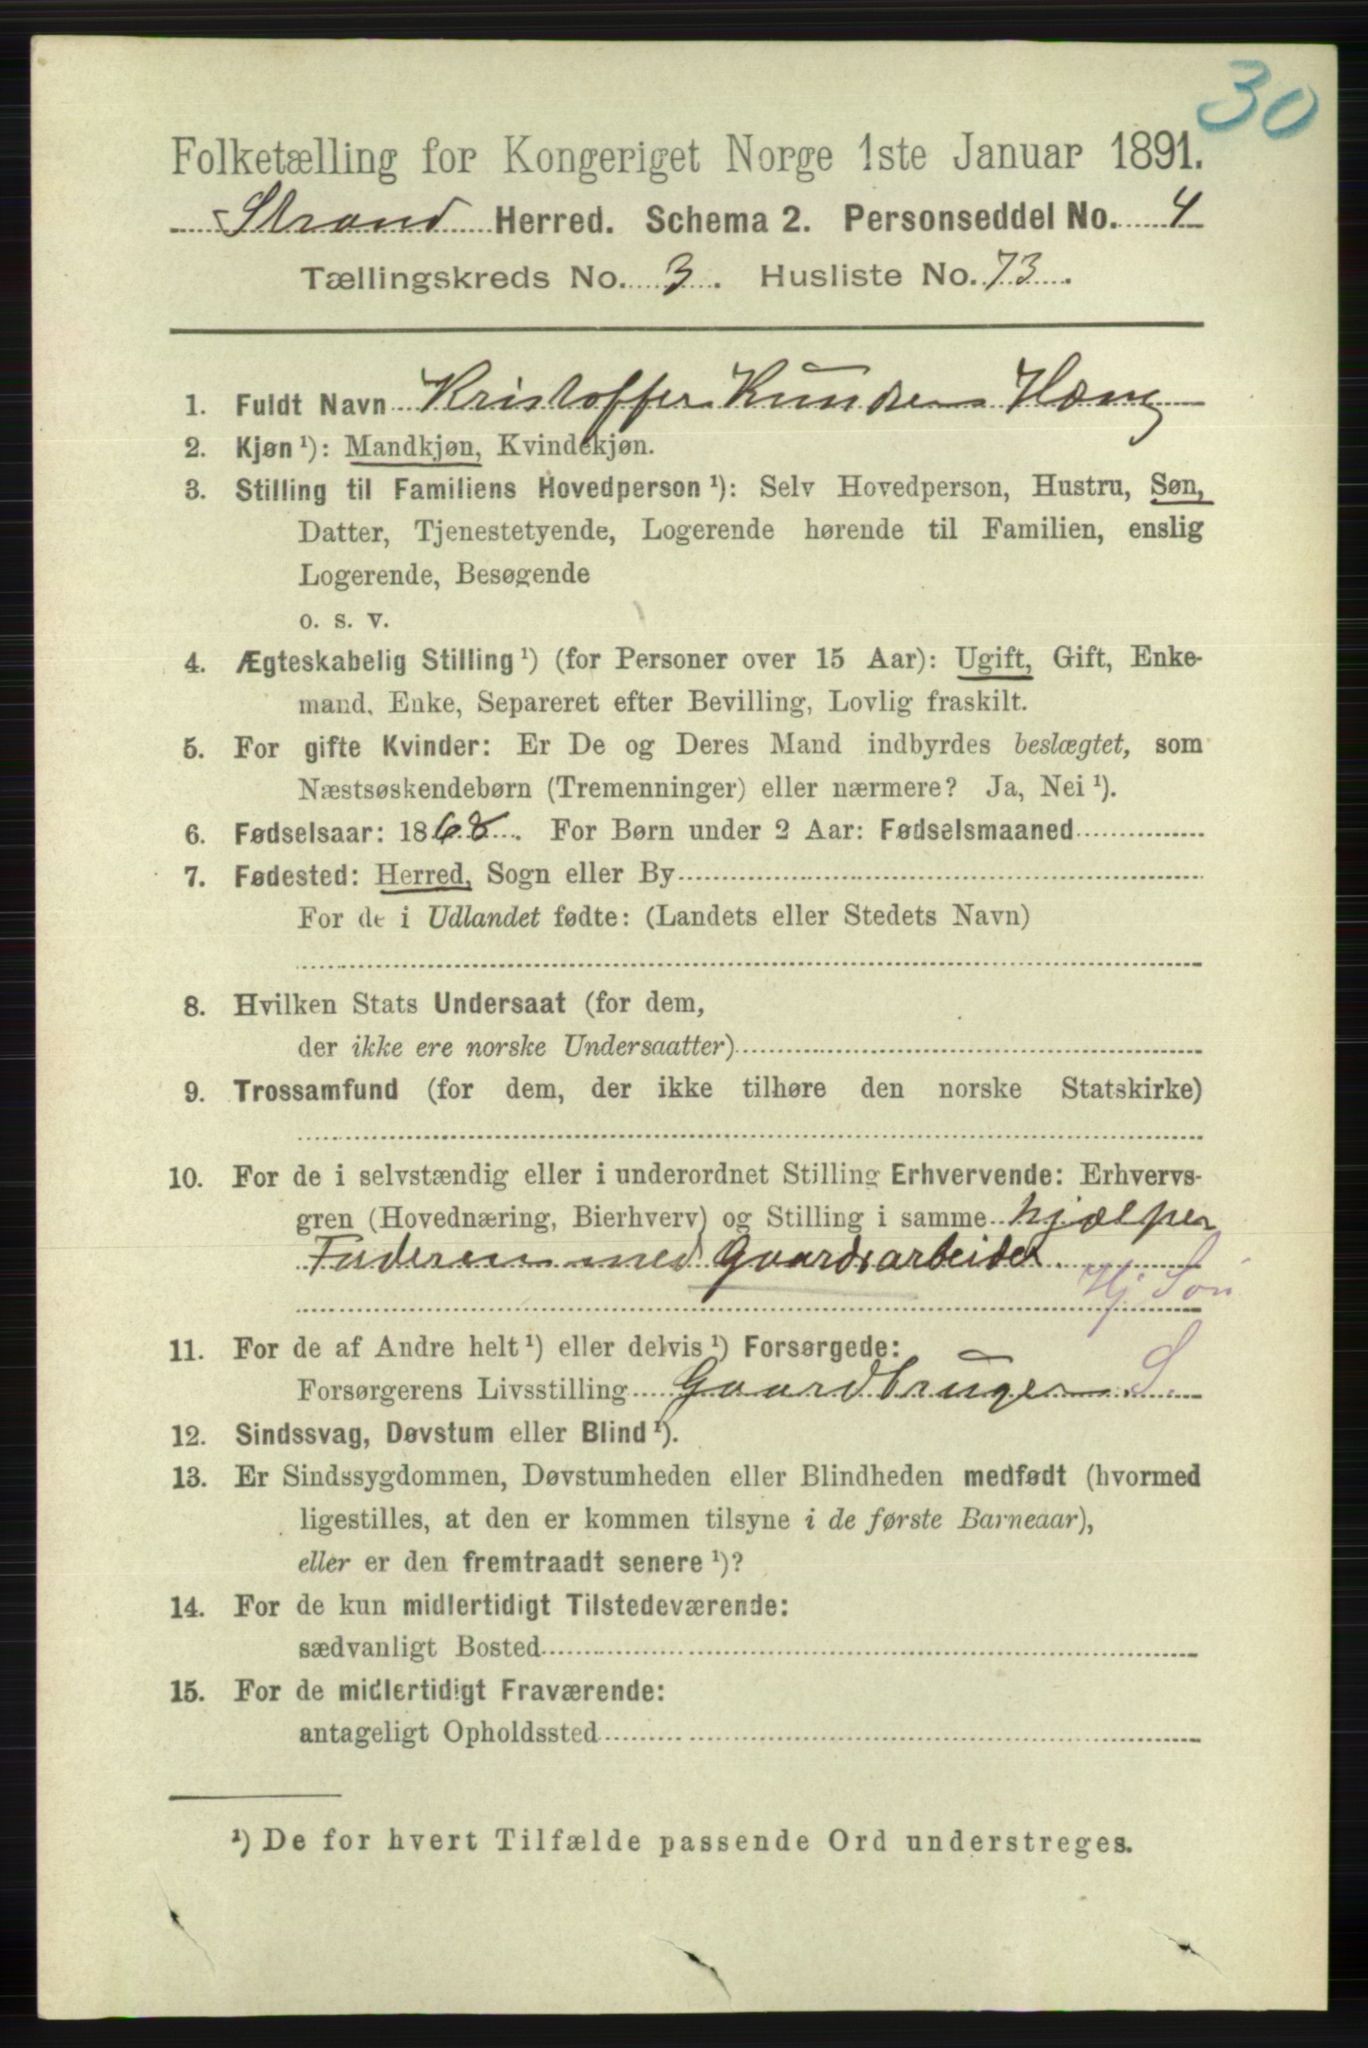 30
Folketælling for Kongeriget Norge 1ste Januar 1891.
Strand Herred. Schema 2. Personseddel No. 4
Tællingskreds No. 3. Husliste No. 73.
1. Fuldt Navn Kristoffer Knudsen
2. Kjøn ¹): Mandkjøn, Kvindekjøn.
3. Stilling til Familiens Hovedperson ¹): Selv Hovedperson, Hustru, Søn,
Datter, Tjenestetyende, Logerende hørende til Familien, enslig
Logerende, Besøgende
o. s. v.
4. Ægteskabelig Stilling ¹) (for Personer over 15 Aar): Ugift, Gift, Enke-
mand, Enke, Separeret efter Bevilling, Lovlig fraskilt.
5. For gifte Kvinder: Er De og Deres Mand indbyrdes beslægtet, som
Næstsøskendebørn (Tremenninger) eller nærmere? Ja, Nei ¹).
6. Fødselsaar: 1868. For Børn under 2 Aar: Fødselsmaaned
7. Fødested: Herred, Sogn eller By
For de i Udlandet fødte: (Landets eller Stedets Navn)
8. Hvilken Stats Undersaat (for dem,
der ikke ere norske Undersaatter)
9. Trossamfund (for dem, der ikke tilhøre den norske Statskirke)
10. For de i selvstændig eller i underordnet Stilling Erhvervende: Erhvervs-
gren (Hovednæring, Bierhverv) og Stilling i samme hjælper
Faderen med Gaardsarbeidet
Hj. Søn
11. For de af Andre helt ¹) eller delvis ¹) Forsørgede:
Forsørgerens Livsstilling Gaardbruger S.
12. Sindssvag, Døvstum eller Blind ¹).
13. Er Sindssygdommen, Døvstumheden eller Blindheden medfødt (hvormed
ligestilles, at den er kommen tilsyne i de første Barneaar),
eller er den fremtraadt senere ¹)?
14. For de kun midlertidigt Tilstedeværende:
sædvanligt Bosted
15. For de midlertidigt Fraværende:
antageligt Opholdssted
¹) De for hvert Tilfælde passende Ord understreges.